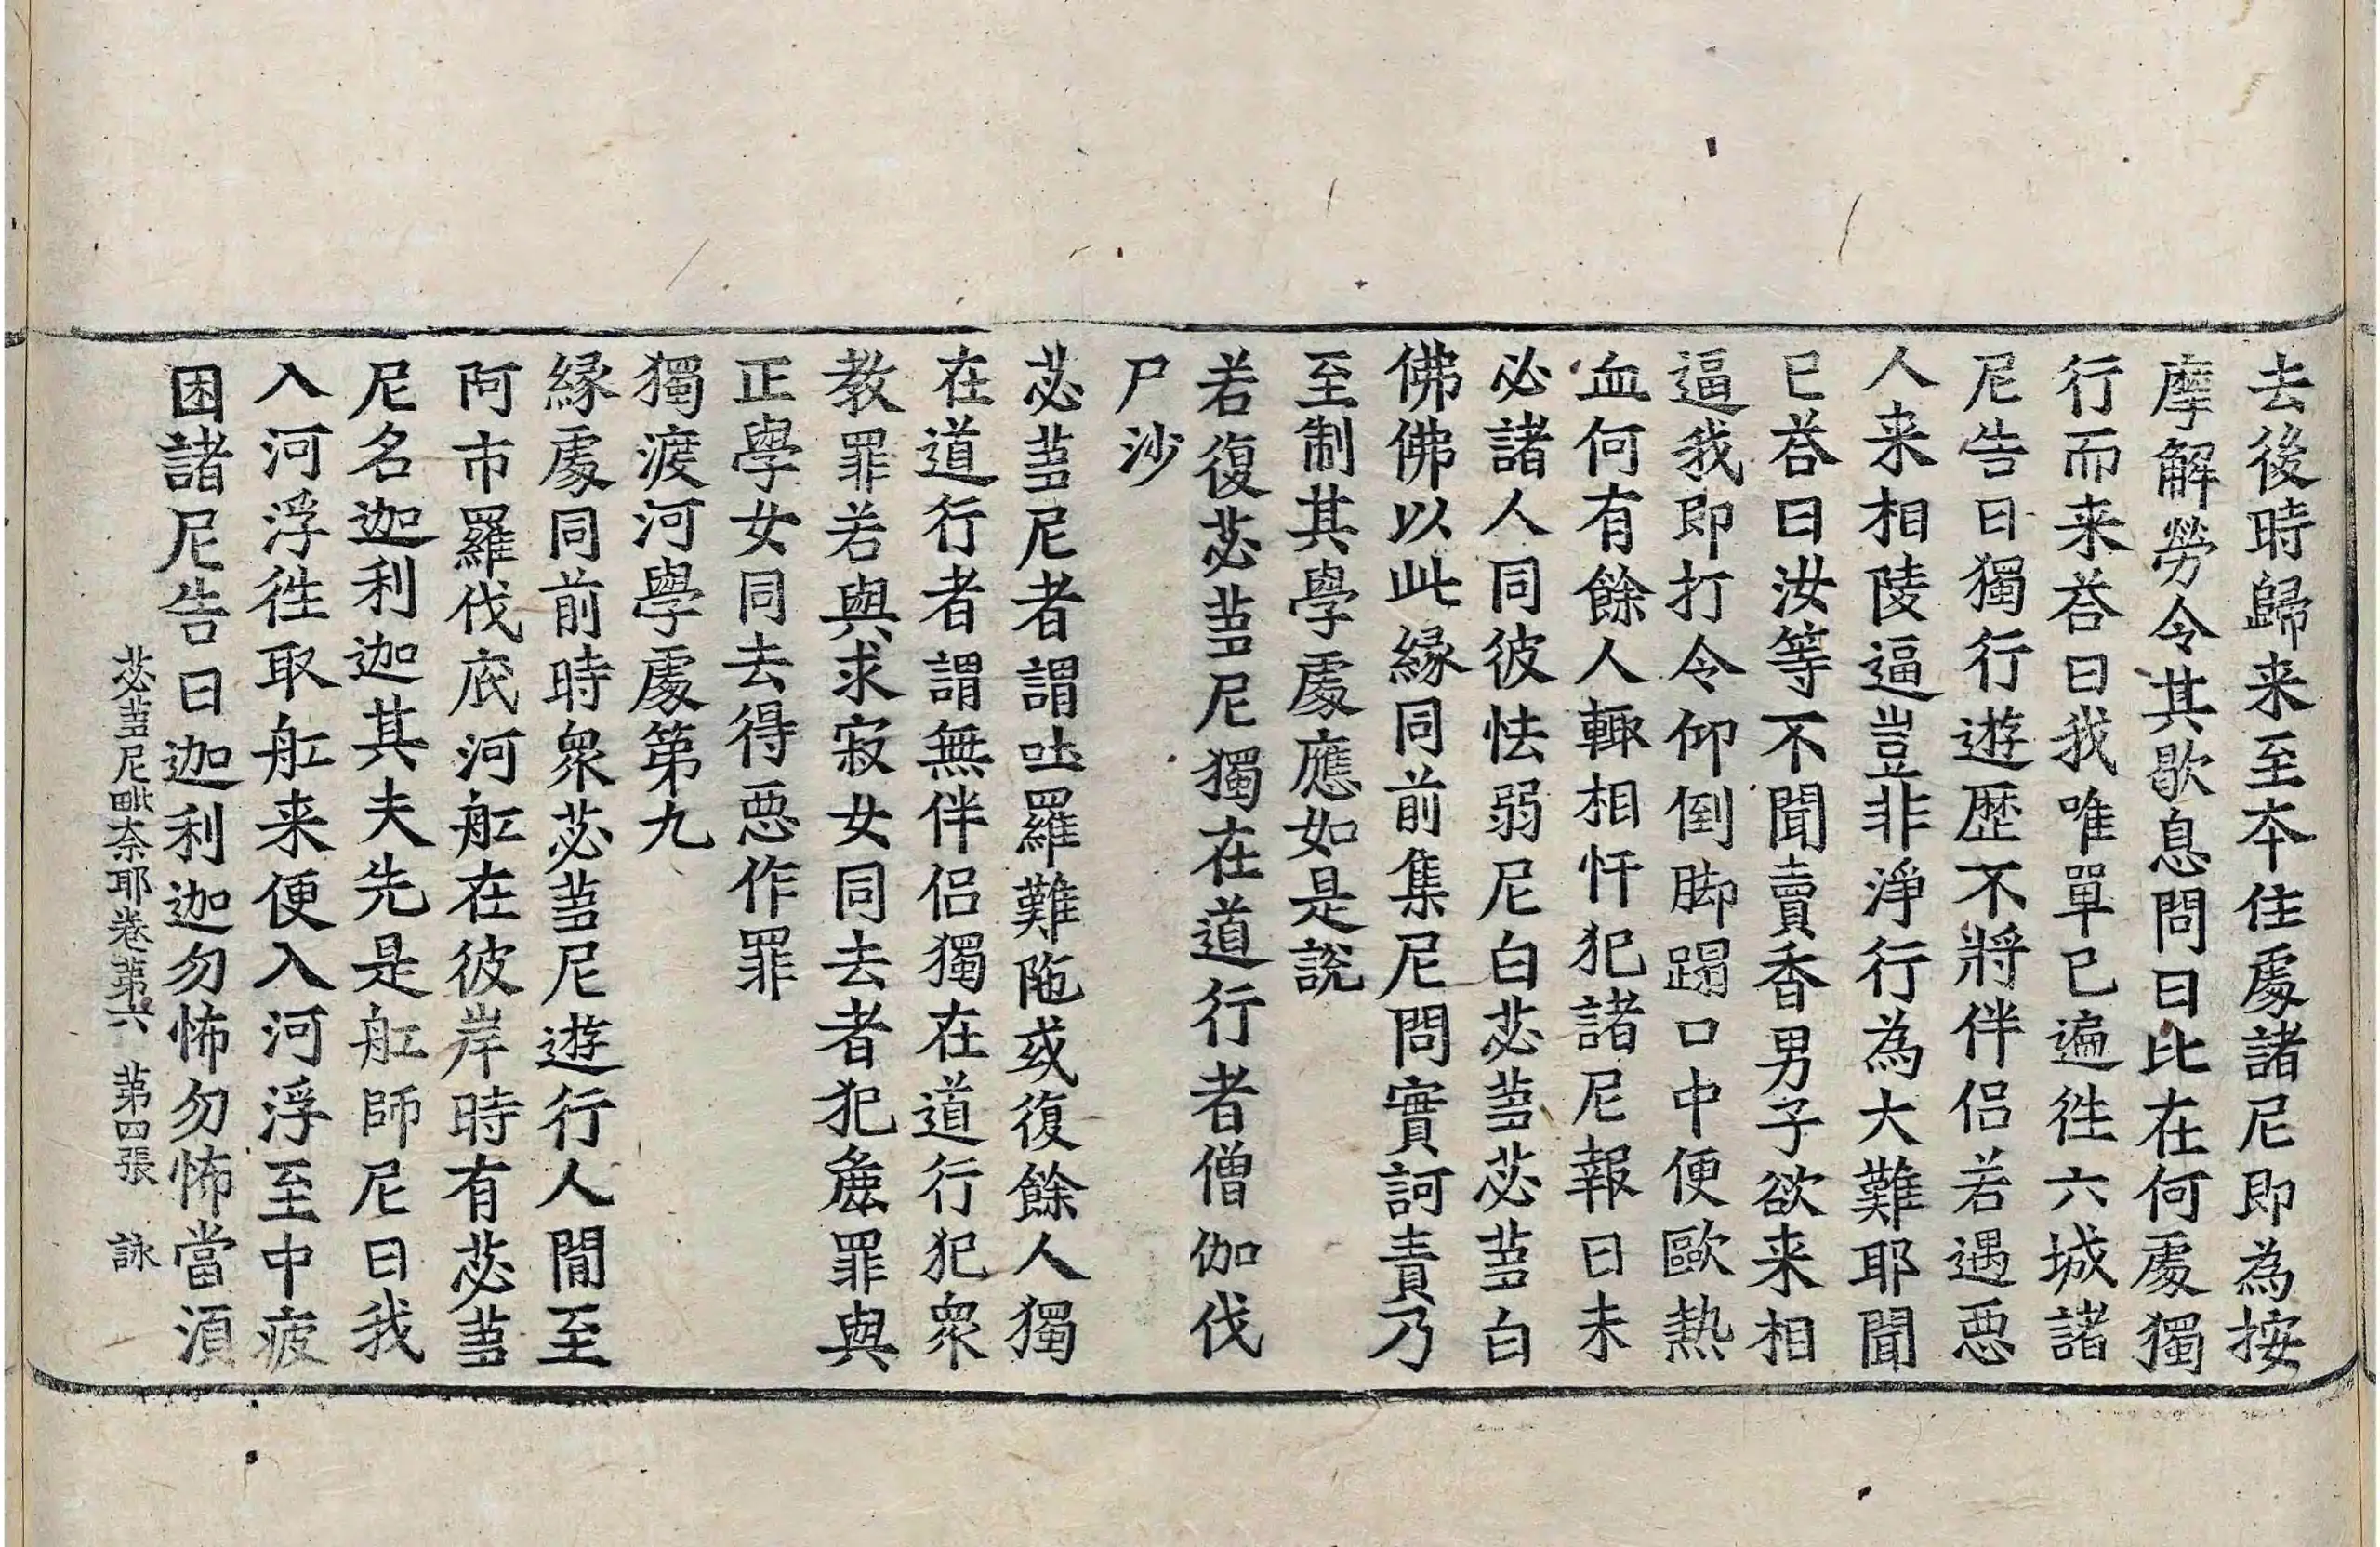 去後時歸来至本住處諸尼即為按
摩解勞令其歇息問曰比在何處獨
行而来荅曰我唯單已遍徃六城諸
尼告曰獨行遊歷不將伴侶若遇惡
人来相陵逼豈非淨行為大難耶聞
已荅曰汝等不聞賣香男子欲来相
逼我即打令仰倒脚蹋口中便歐熱
血何有餘人輙相忏犯諸尼報曰未
必諸人同彼怯弱尼白苾蒭苾蒭白
佛佛以此緣同前集尼問實訶責乃
至制其學處應如是說
若復苾蒭尼獨在道行者僧伽伐
尸沙
苾蒭尼者謂吐羅難陁或復餘人獨
在道行者謂無伴侣獨在道行犯衆
教罪若與求寂女同去者犯麁罪與
正學女同去得惡作罪
獨渡河學處第九
緣處同前時衆苾蒭尼遊行人間至
阿市羅伐底河舡在彼岸時有苾蒭
尼名迦利迦其夫先是舡師尼曰我
入河浮徃取舡来便入河浮至中疲
困諸尼告曰迦利迦勿怖勿怖當湏
苾蒭尼毗奈耶卷第六 第四張 詠